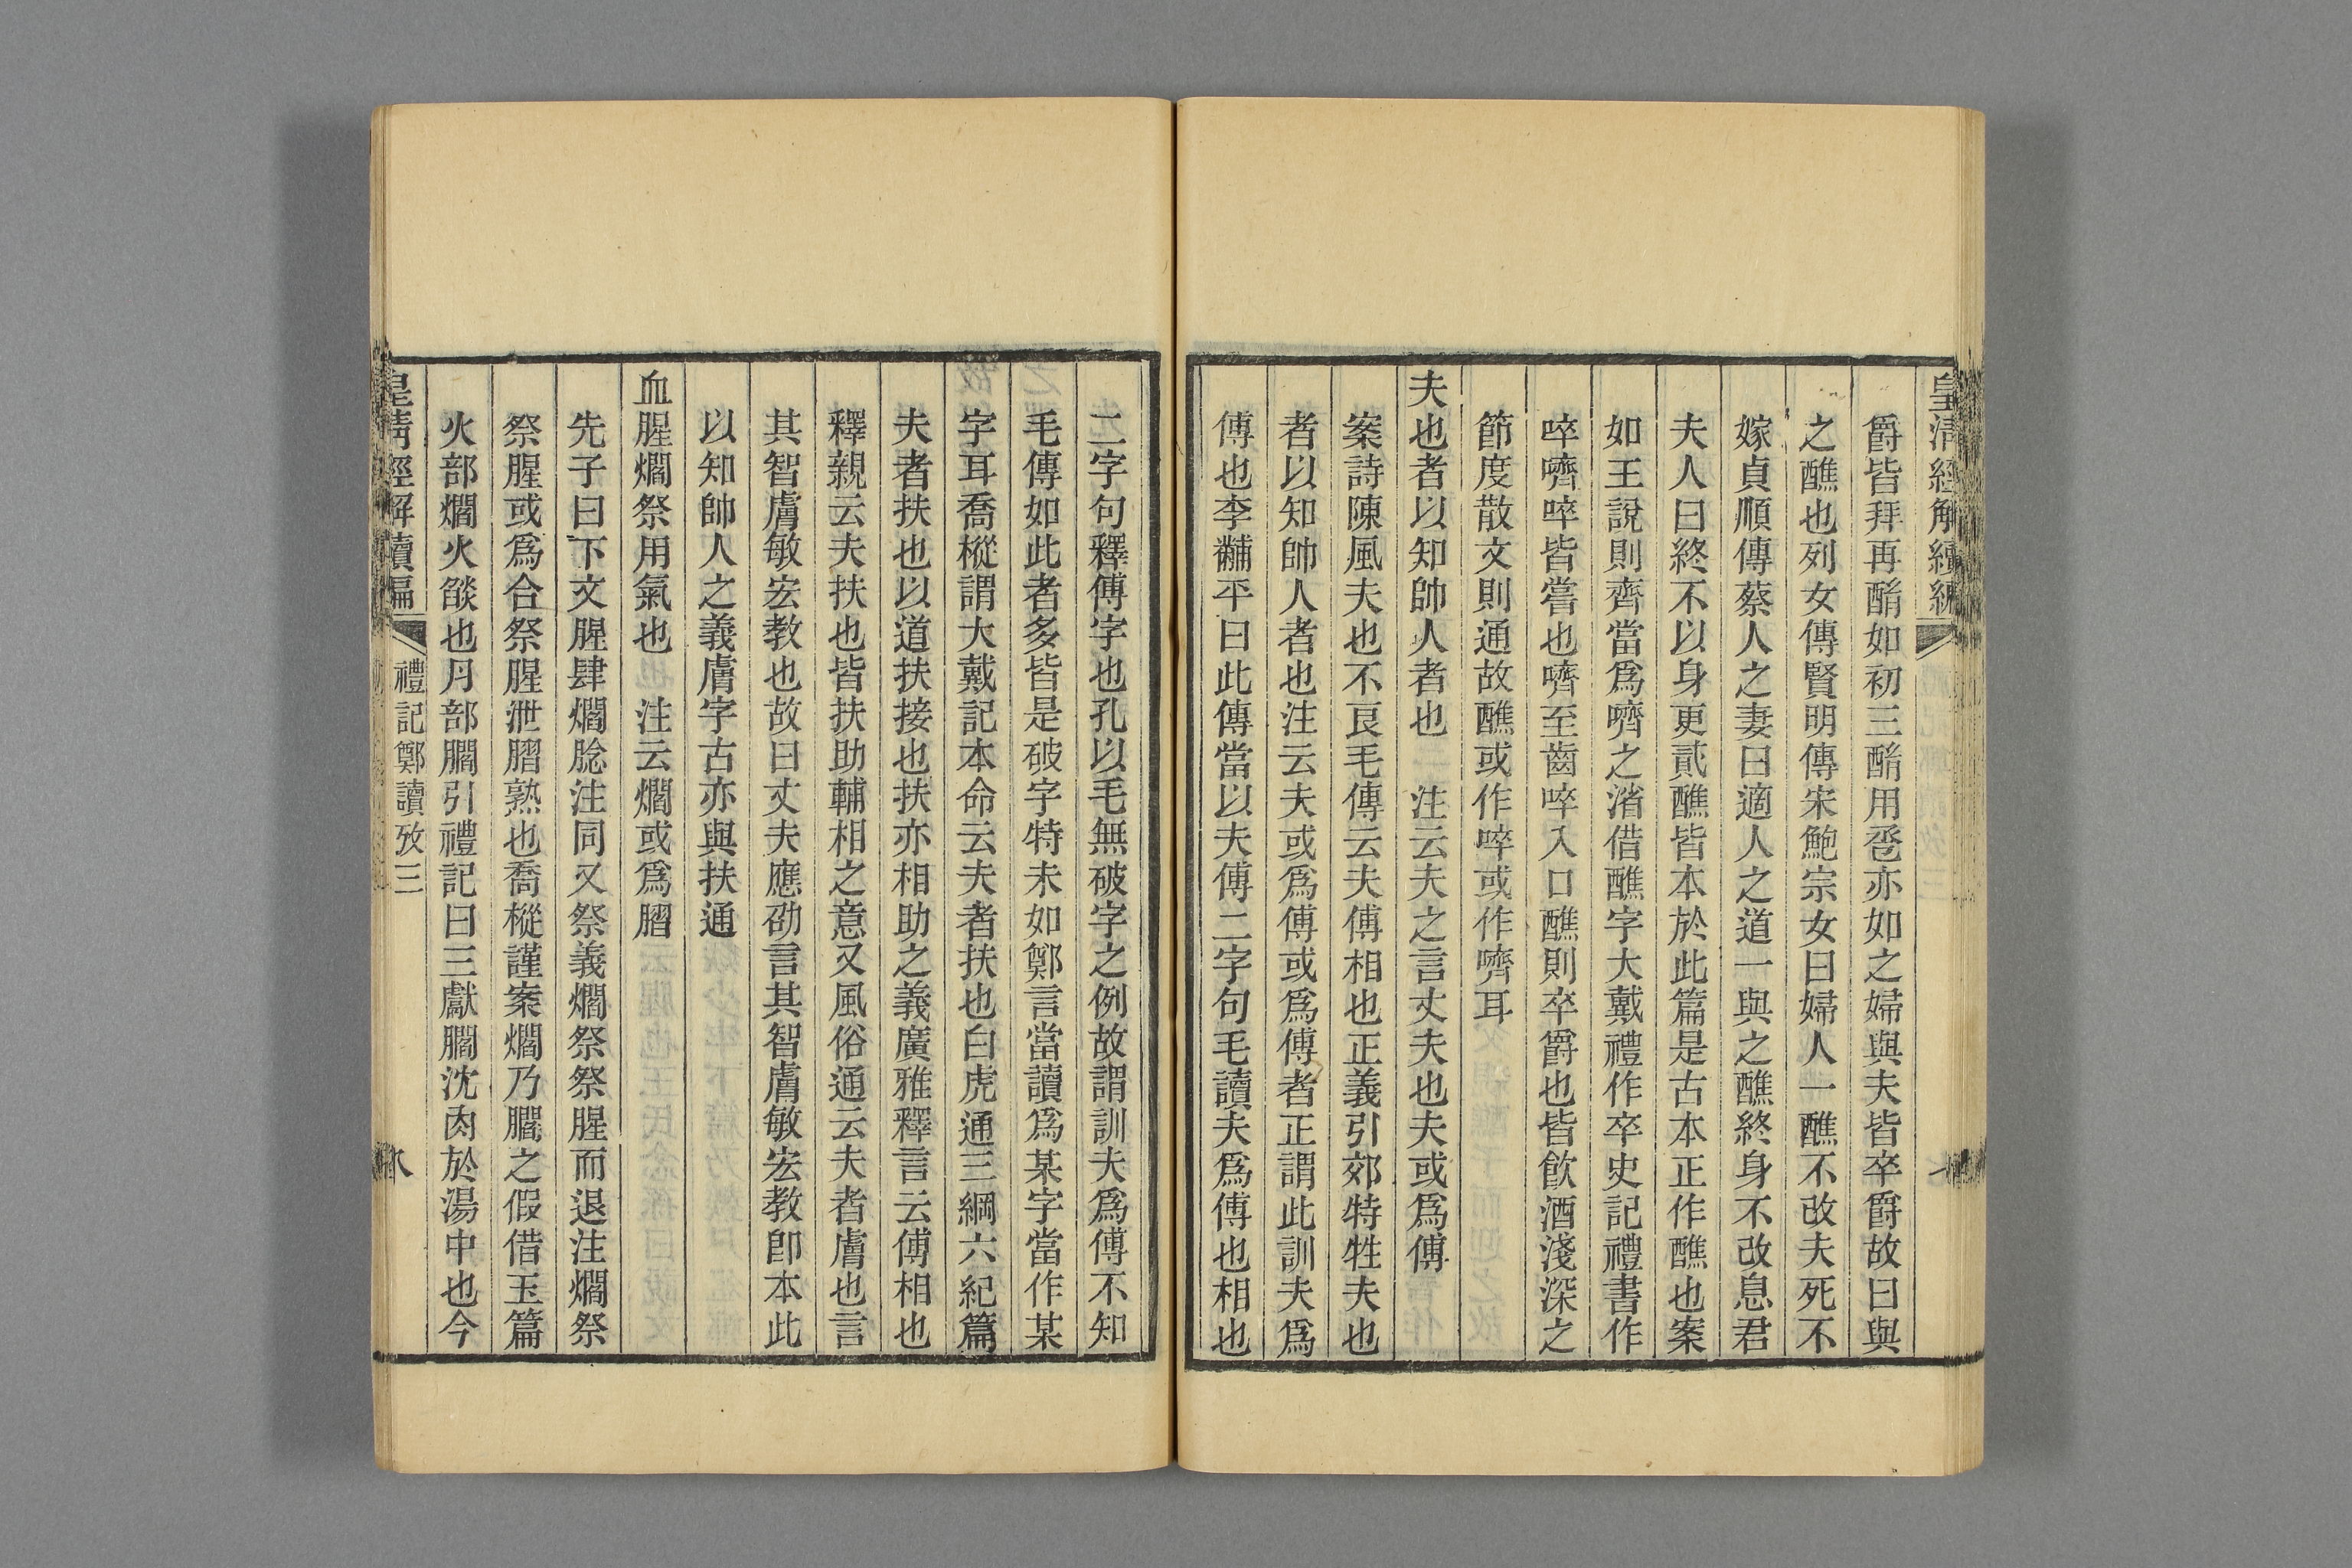 皇清經解續編
七
爵皆拜再酳如初三酳用卺亦如之婦與夫皆卒爵故曰與
之醮也列女傳賢明傳宋鮑宗女曰婦人一醮不改夫死不
嫁貞順傳蔡人之妻曰適人之道一與之醮終身不改息君
夫人曰終不以身更貳醮皆本於此篇是古本正作醮也案
如王說則齊當爲嚌之渻借醮字大戴禮作卒史記禮書作
啐嚌啐皆嘗也嚌至齒啐入口醮則卒爵也皆飮酒淺深之
節度散文則通故醮或作啐或作嚌耳
夫也者以知帥人者也　注云夫之言丈夫也夫或爲傅
案詩陳風夫也不良毛傳云夫傅相也正義引郊特牲夫也
者以知帥人者也注云夫或爲傅或爲傅者正謂此訓夫爲
傅也李黼平曰此傳當以夫傅二字句毛讀夫爲傅也相也
二字句釋傅字也孔以毛無破字之例故謂訓夫爲傅不知
毛傳如此者多皆是破字特未如鄭言當讀爲某字當作某
字耳喬樅謂大戴記本命云夫者扶也白虎通三綱六紀篇
夫者扶也以道扶接也扶亦相助之義廣雅釋言云傅相也
釋親云夫扶也皆扶助輔相之意又風俗通云夫者膚也言
其智膚敏宏教也故曰丈夫應劭言其智膚敏宏教卽本此
以知帥人之義膚字古亦與扶通
血腥爓祭用氣也　注云爓或爲腤
先子曰下文腥肆爓腍注同又祭義爓祭祭腥而退注爓祭
祭腥或爲合祭腥泄腤熟也喬樅謹案爓乃臑之假借玉篇
火部爓火燄也月部臑引禮記曰三獻臑沈肉於湯中也今
皇清經解續編
禮記鄭讀攷三
八